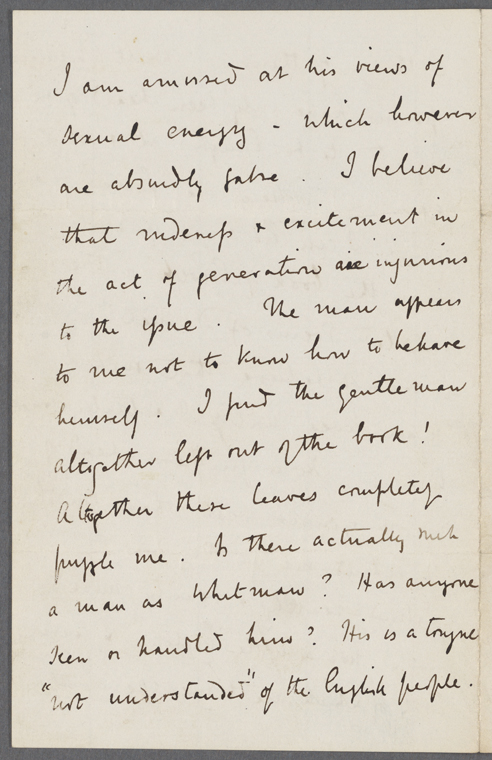 I am amused at his views of
sexual energy - which however
are absurdly false . I believe
that rudeness & excitement in
the act of generation are injurious
to the issue . The man appears
to me not to know how to behave
himself . I find the gentleman
altogether left out of the book !
Altogether these leaves completely
puzzle me . Is there actually such
a man as Whitman ? Has anyone
seen or handled him ? His is a tongue
"not understanded" of the English people .